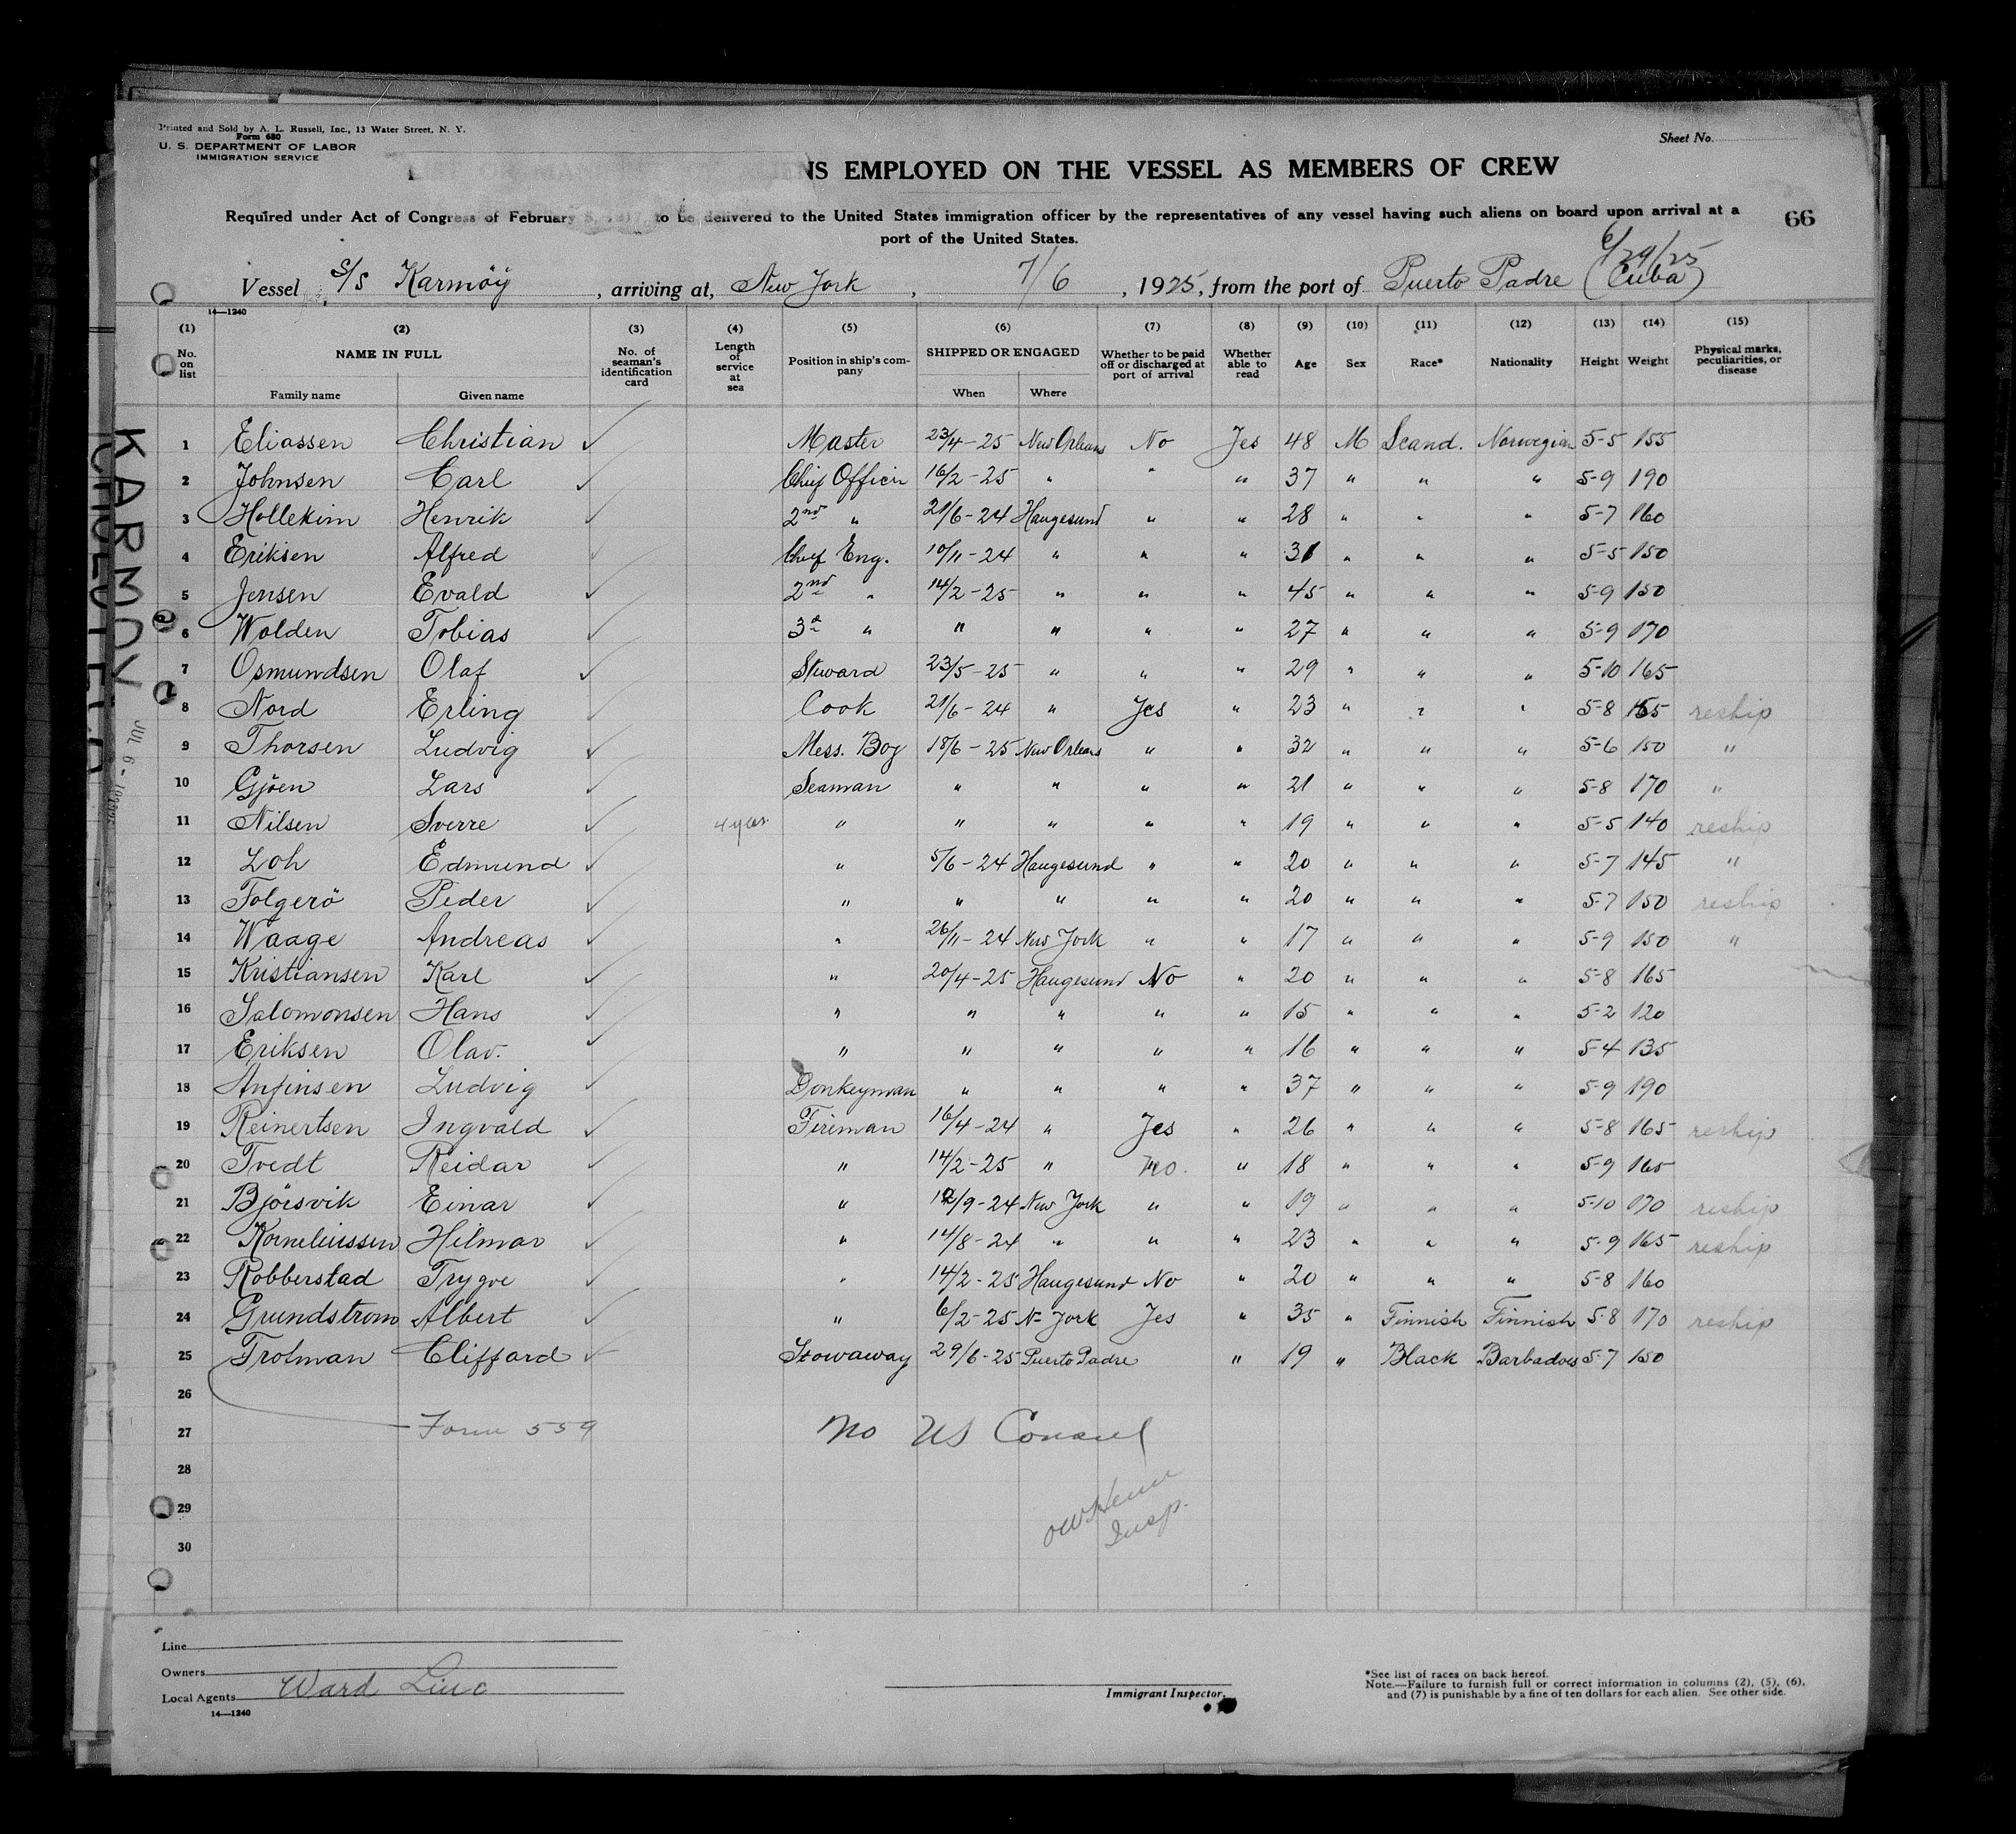 Printed and Sold by A. L. Russell, Inc., 13 Water Street, N. Y.
Form 680
U. S. DEPARTMENT OF LABOR
IMMIGRATION SERVICE
Sheet No.
NS EMPLOYED ON THE VESSEL AS MEMBERS OF CREW
Required under Act of Congress of February to be delivered to the United States immigration officer by the representatives of any vessel having such aliens on board upon arrival at a
port of the United States.
66
6/29/25
Vessel S/S Karmöy, arriving at, New York, 7/6, 1925, from the port of Puerto Padre (Cuba)
14—1240
(1) (2) (3) (4) (5) (6) (7) (8) (9) (10) (11) (12) (13) (14) (15)
No. on list NAME IN FULL Family name Given name No. of seaman's identification card Length of service at sea Position in ship's company SHIPPED OR ENGAGED When Where Whether to be paid off or discharged at port of arrival Whether able to read Age Sex Race* Nationality Height Weight Physical marks, peculiarities, or disease
1 Eliassen Christian ✓ Master 23/4-25 New Orleans No Yes 48 M Scand. Norwegian 5-5 155
2 Johnsen Carl ✓ Chief Officer 16/2-25 " " " 37 " " " 5-9 190
3 Hollekim Henrik ✓ 2nd " 21/6-24 Haugesund " " 28 " " " 5-7 160
4 Eriksen Alfred ✓ Chief Eng. 10/11-24 " " " 31 " " " 5-5 150
5 Jensen Evald ✓ 2nd " 14/2-25 " " " 45 " " " 5-9 150
6 Wolden Tobias ✓ 3d " " " " " 27 " " " 5-9 170
7 Osmundsen Olaf ✓ Steward 23/5-25 " " " 29 " " " 5-10 165
8 Nord Erling ✓ Cook 21/6-24 " Yes " 23 " " " 5-8 165 reship
9 Thorsen Ludvig ✓ Mess. Boy 18/6-25 New Orleans " " 32 " " " 5-6 150 "
10 Gjöen Lars ✓ Seaman " " " " 21 " " " 5-8 170 "
11 Nilsen Sverre ✓ 4 yrs. " " " " " 19 " " " 5-5 140 reship
12 Loh Edmund ✓ " 5/6-24 Haugesund " " 20 " " " 5-7 145 "
13 Folgerö Peder ✓ " " " " " 20 " " " 5-7 150 reship
14 Waage Andreas ✓ " 26/11-24 New York " " 17 " " " 5-9 150 "
15 Kristiansen Karl ✓ " 20/4-25 Haugesund No " 20 " " " 5-8 165
16 Salomonsen Hans ✓ " " " " " 15 " " " 5-2 120
17 Eriksen Olav. ✓ " " " " " 16 " " " 5-4 135
18 Anfinsen Ludvig ✓ Donkeyman " " " " 37 " " " 5-9 190
19 Reinertsen Ingvald ✓ Fireman 16/4-24 " Yes " 26 " " " 5-8 165 reship
20 Tvedt Reidar ✓ " 14/2-25 " No. " 18 " " " 5-9 165
21 Björsvik Einar ✓ " 12/9-24 New York " " 19 " " " 5-10 170 reship
22 Korneliussen Hilmar ✓ " 14/8-24 " " " 23 " " " 5-9 165 reship
23 Robberstad Trygve ✓ " 14/2-25 Haugesund No " 20 " " " 5-8 160
24 Grundstrom Albert ✓ " 6/2-25 N-York Yes " 35 " Finnish Finnish 5-8 170 reship
25 Trotman Clifford ✓ Stowaway 29/6-25 Puerto Padre " 19 " Black Barbados 5-7 150
26
27 Form 559 No US Consul
28
29
30
Insp.
KARMOY
JUL 6 - 1925
Line
Owners
Local Agents Ward Line
14—1240
Immigrant Inspector.
*See list of races on back hereof.
Note.—Failure to furnish full or correct information in columns (2), (5), (6),
and (7) is punishable by a fine of ten dollars for each alien. See other side.